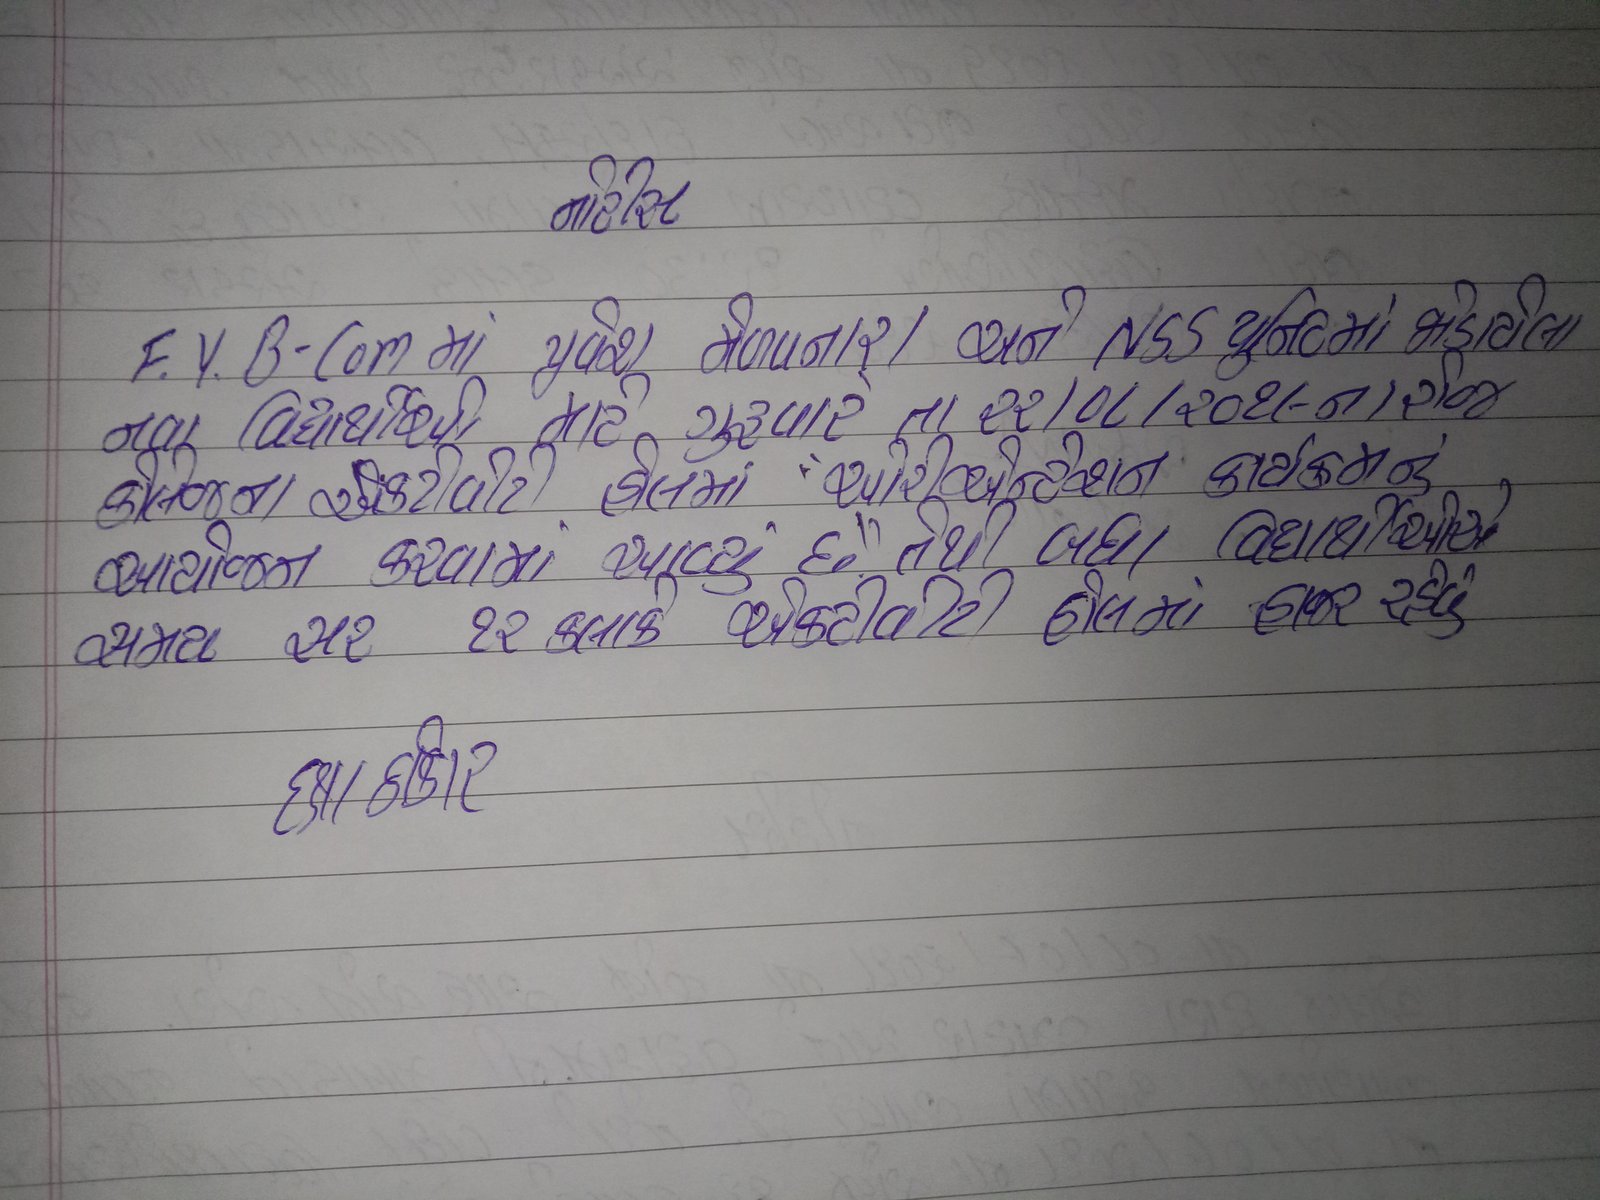 નોટીસ
F.Y. B-Com માં પ્રવેશ મેળવનારા અને NSS યુનિટમાં જોડાયેલા
નવા વિદ્યાર્થીઓ માટે ગુરૂવારે તા ૨૨/૦૮/૨૦૧૯ના રોજ
કોલેજના એકટીવીટી હોલમાં "ઓરીએન્ટેશન કાર્યક્રમનું
આયોજન કરવામાં આવ્યું છે" તેથી બધા વિદ્યાર્થીઓએ
સમય સર ૧૨ કલાકે એકટીવીટી હોલમાં હાજર રહેવું